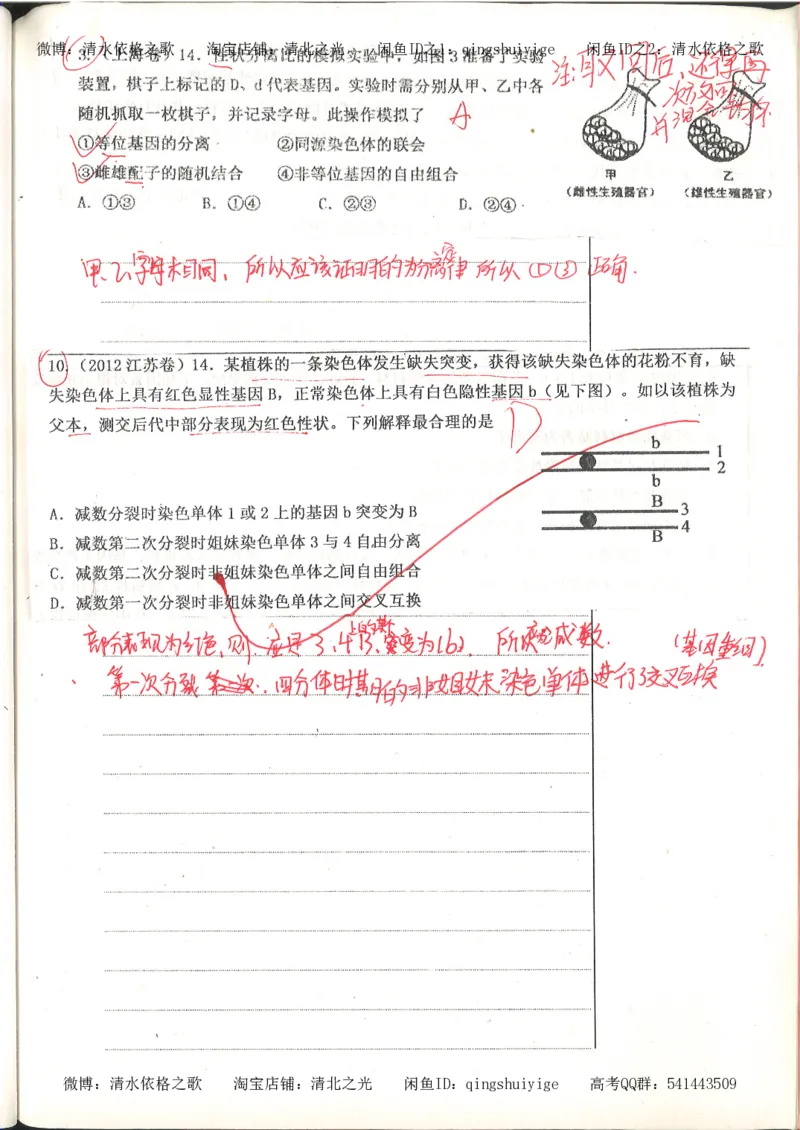 微博：清水依格之歌 淘宝店铺：清北之光 闲鱼ID之1：qingshuiyige 闲鱼ID之2：清水依格之歌
3.（上海卷）14．性状分离比的模拟实验中，如图3准备了实验
装置，棋子上标记的D、d代表基因。实验时需分别从甲、乙中各
随机抓取一枚棋子，并记录字母。此操作模拟了 A
①等位基因的分离 ②同源染色体的联会
③雌雄配子的随机结合 ④非等位基因的自由组合
A．①③ B．①④ C．②③ D．②④
注：取回后，还得再
次放回
并混合
甲 乙
（雌性生殖器官） （雄性生殖器官）
甲、乙字母相同，所以应该证明的为分离定律 所以①③正确．
10.（2012江苏卷）14．某植株的一条染色体发生缺失突变，获得该缺失染色体的花粉不育，缺
失染色体上具有红色显性基因B，正常染色体上具有白色隐性基因b（见下图）。如以该植株为
父本，测交后代中部分表现为红色性状。下列解释最合理的是 D
b 1
2
b
B 3
4
B
A．减数分裂时染色单体1或2上的基因b突变为B
B．减数第二次分裂时姐妹染色单体3与4自由分离
C．减数第二次分裂时非姐妹染色单体之间自由组合
D．减数第一次分裂时非姐妹染色单体之间交叉互换
部分表现为红色，则 应是3、4 B 突变为 成数． （基因重组）
第一次分裂 四分体时期的非姐妹染色单体进行交叉互换
微博：清水依格之歌 淘宝店铺：清北之光 闲鱼ID：qingshuiyige 高考QQ群：541443509